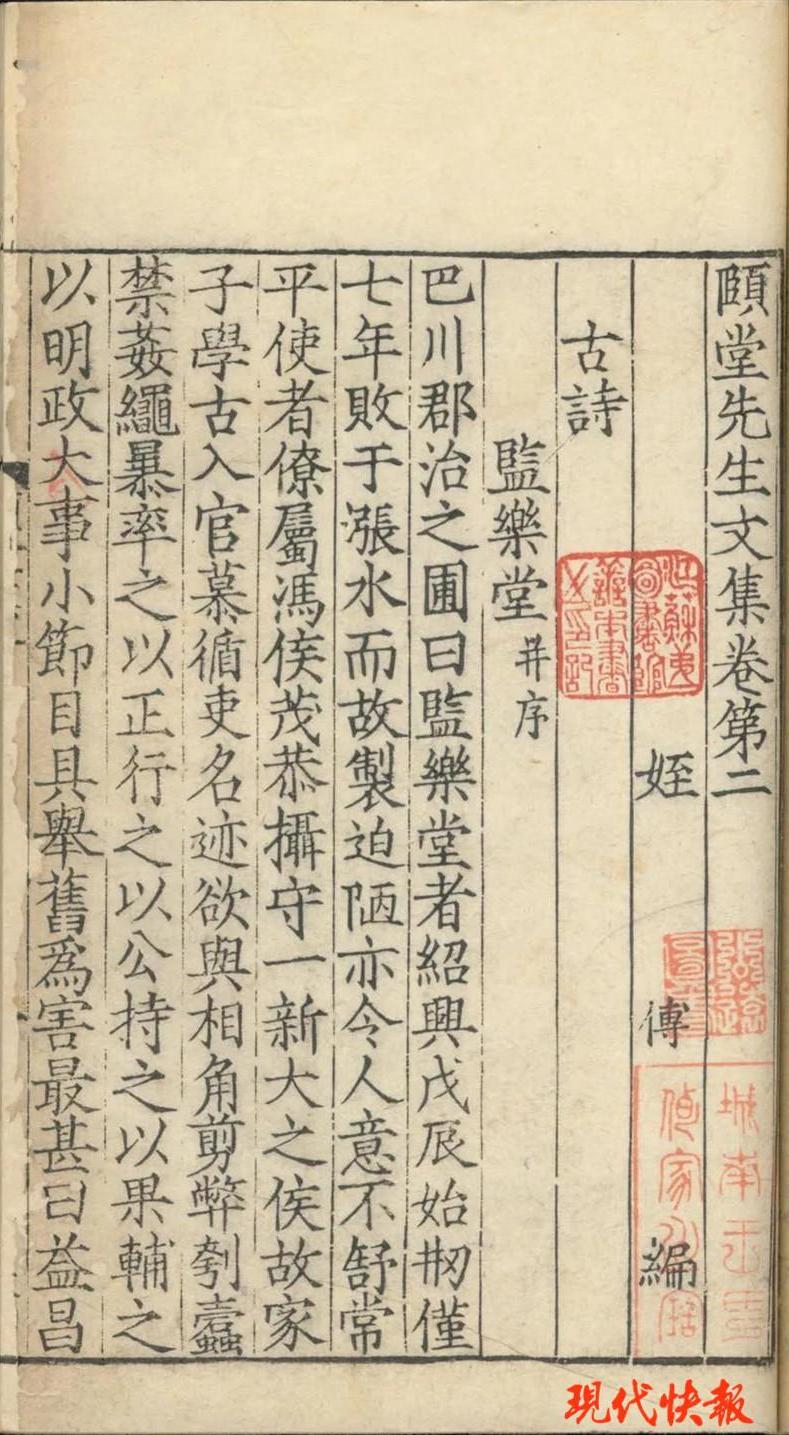 頤堂先生文集卷第二
姪 傅 編
古詩
監樂堂 并序
巴川郡治之圃曰監樂堂者紹興戊辰始剏僅
七年敗于漲水而故製迫陋亦令人意不舒常
平使者僚屬馮侯茂恭攝守一新大之侯故家
子學古入官慕循吏名迹欲與相角剪弊刳蠹
禁姦繩暴率之以正行之以公持之以果輔之
以明政大事小節目具舉舊為害最甚曰益昌
江蘇
圖書館
善本書
現代快報